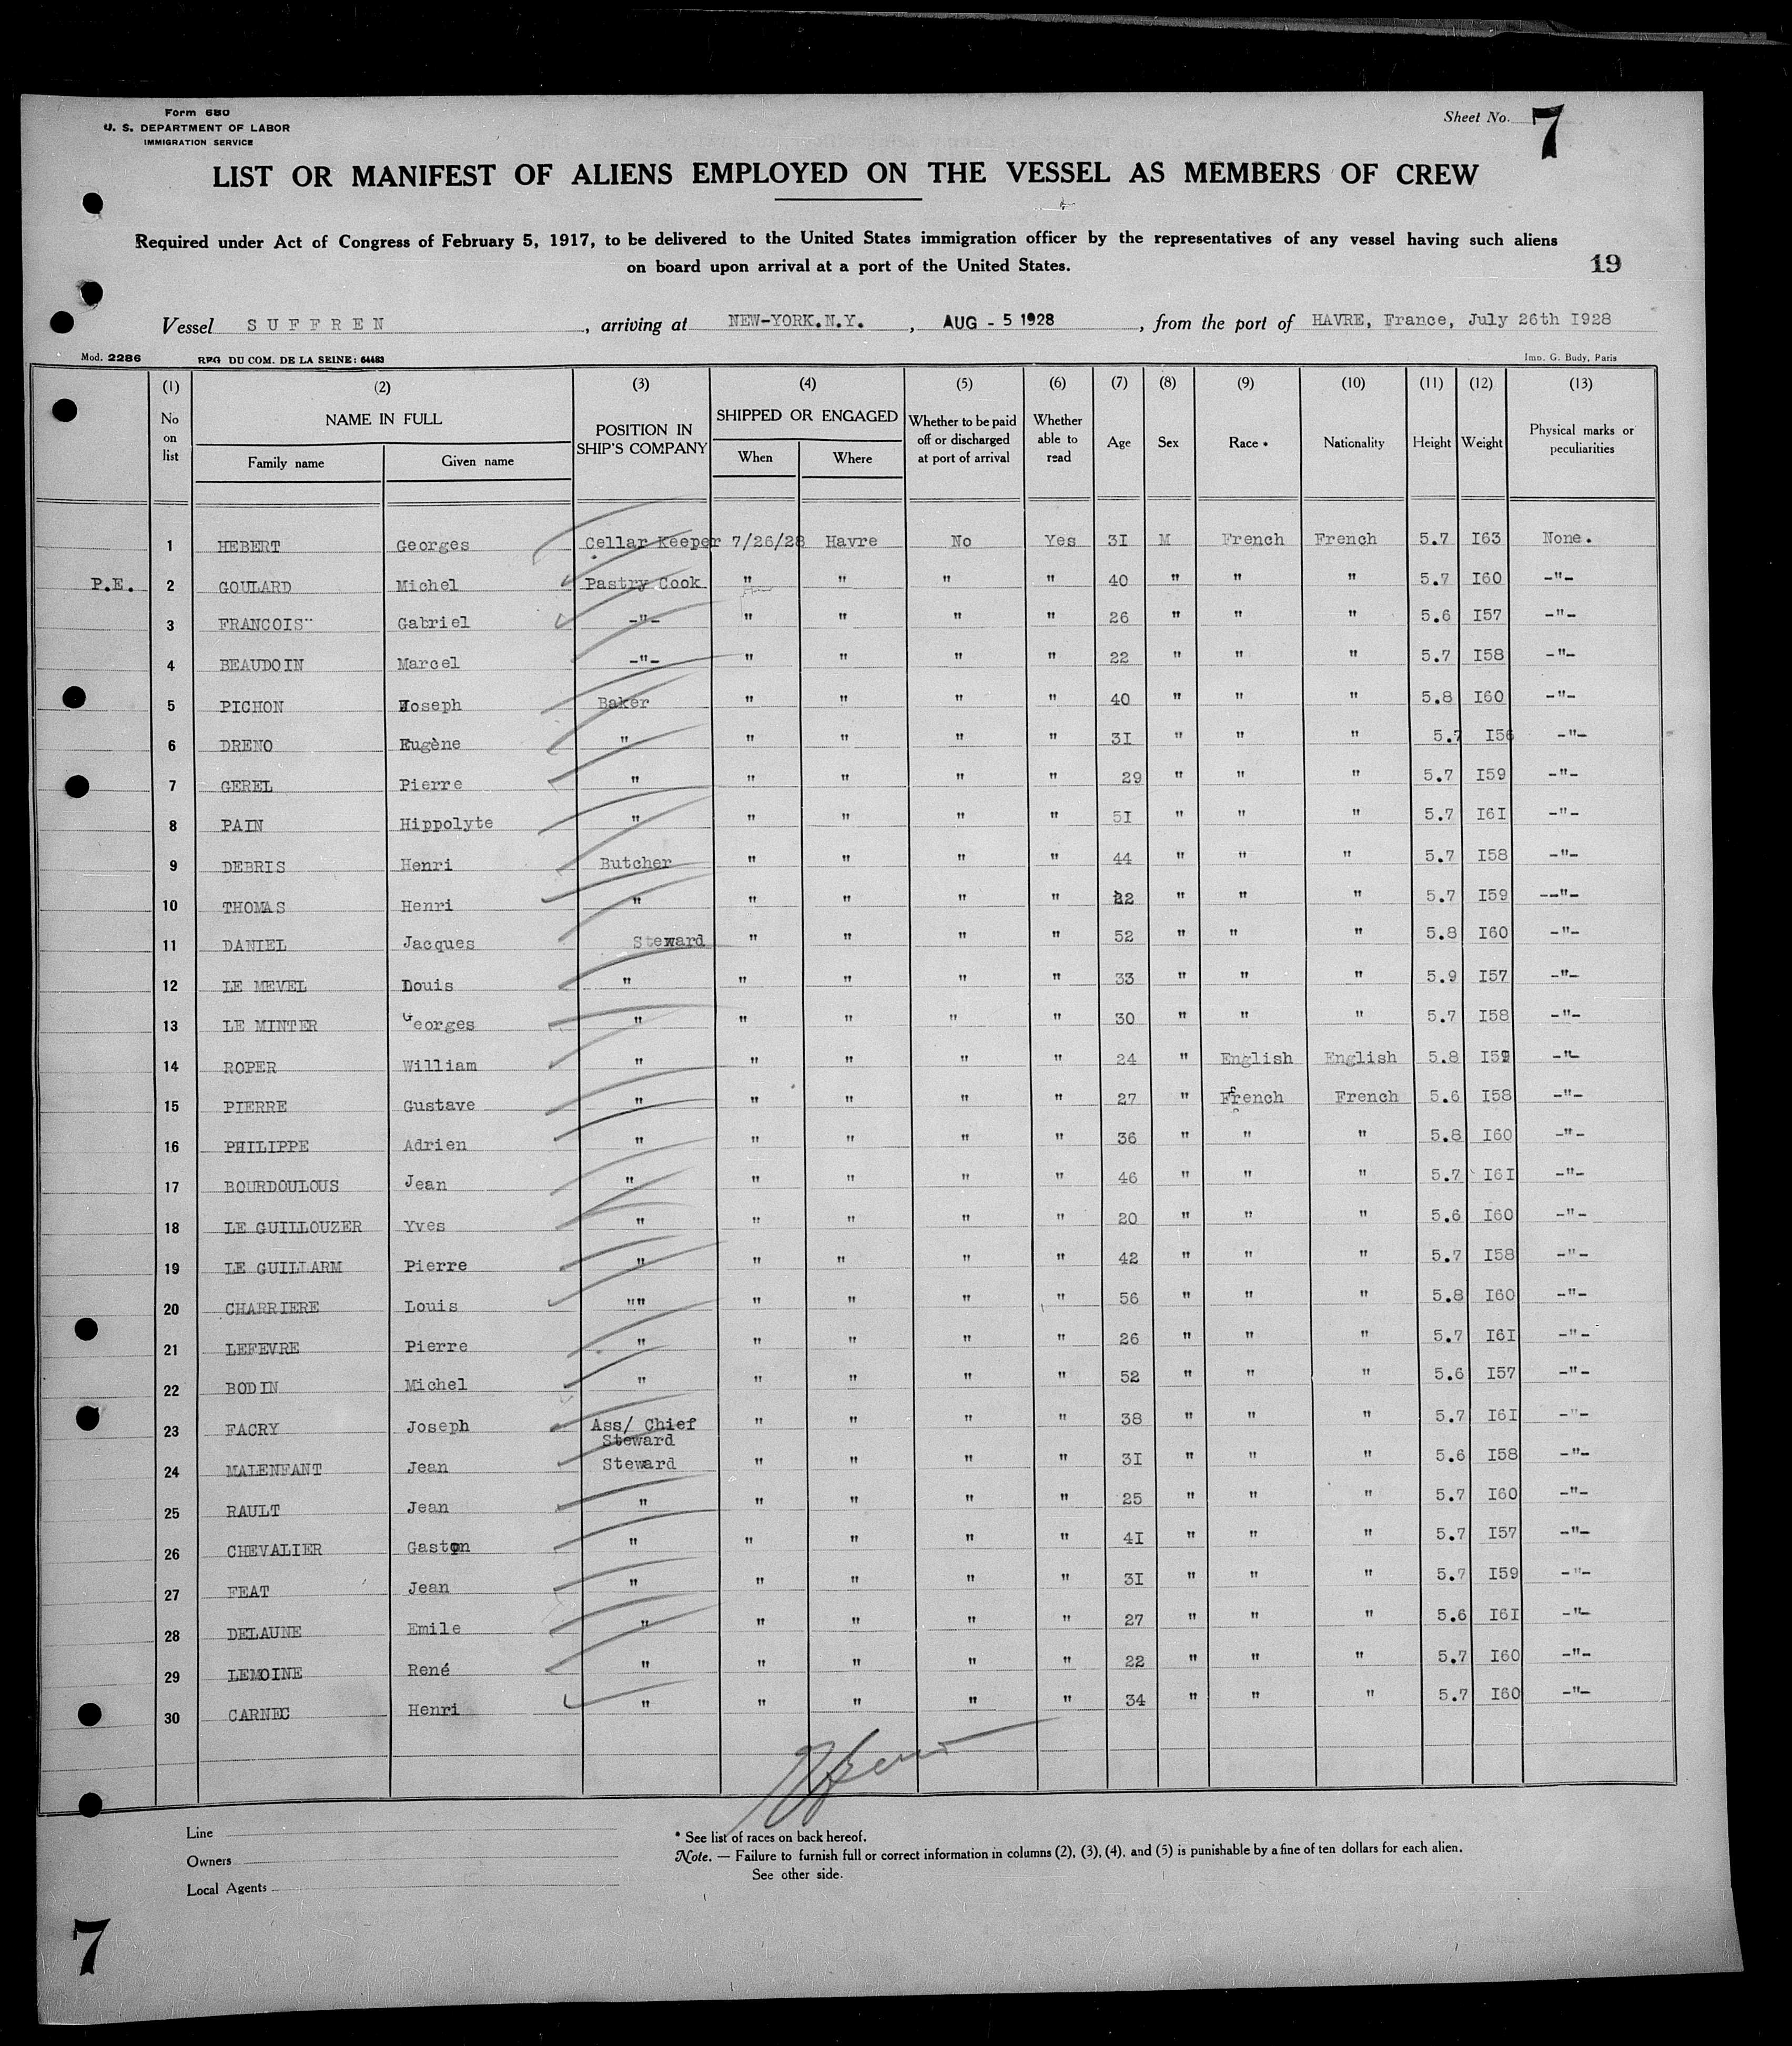 Form 680
U. S. DEPARTMENT OF LABOR
IMMIGRATION SERVICE
Sheet No. 7
LIST OR MANIFEST OF ALIENS EMPLOYED ON THE VESSEL AS MEMBERS OF CREW
Required under Act of Congress of February 5, 1917, to be delivered to the United States immigration officer by the representatives of any vessel having such aliens
on board upon arrival at a port of the United States.
19
Vessel SUFFREN, arriving at NEW-YORK.N.Y., AUG - 5 1928, from the port of HAVRE, France, July 26th I928
Mod. 2286 REG DU COM. DE LA SEINE: 64483 Imp. G. Budy, Paris
(1) (2) (3) (4) (5) (6) (7) (8) (9) (10) (11) (12) (13)
No on list NAME IN FULL Family name Given name POSITION IN SHIP'S COMPANY SHIPPED OR ENGAGED When Where Whether to be paid off or discharged at port of arrival Whether able to read Age Sex Race * Nationality Height Weight Physical marks or peculiarities
1 HEBERT Georges Cellar Keeper 7/26/28 Havre No Yes 3I M French French 5.7 I63 None.
P.E. 2 GOULARD Michel Pastry Cook " " " " 40 " " " 5.7 I60 -"-
3 FRANCOIS" Gabriel -"- " " " " 26 " " " 5.6 I57 -"-
4 BEAUDOIN Marcel -"- " " " " 22 " " " 5.7 I58 -"-
5 PICHON Joseph Baker " " " " 40 " " " 5.8 I60 -"-
6 DRENO Eugène " " " " " 3I " " " 5.7 I56 -"-
7 GEREL Pierre " " " " " 29 " " " 5.7 I59 -"-
8 PAIN Hippolyte " " " " " 5I " " " 5.7 I6I -"-
9 DEBRIS Henri Butcher " " " " 44 " " " 5.7 I58 -"-
10 THOMAS Henri " " " " " 22 " " " 5.7 I59 --"-
11 DANIEL Jacques Steward " " " " 52 " " " 5.8 I60 -"-
12 LE MEVEL Louis " " " " " 33 " " " 5.9 I57 -"-
13 LE MINTER Georges " " " " " 30 " " " 5.7 I58 -"-
14 ROPER William " " " " " 24 " English English 5.8 I59 -"-
15 PIERRE Gustave " " " " " 27 " French French 5.6 I58 -"-
16 PHILIPPE Adrien " " " " " 36 " " " 5.8 I60 -"-
17 BOURDOULOUS Jean " " " " " 46 " " " 5.7 I6I -"-
18 LE GUILLOUZER Yves " " " " " 20 " " " 5.6 I60 -"-
19 LE GUILLARM Pierre " " " " " 42 " " " 5.7 I58 -"-
20 CHARRIERE Louis "" " " " " 56 " " " 5.8 I60 -"-
21 LEFEVRE Pierre " " " " " 26 " " " 5.7 I6I -"-
22 BODIN Michel " " " " " 52 " " " 5.6 I57 -"-
23 FACRY Joseph Ass/ Chief Steward " " " " 38 " " " 5.7 I6I -"-
24 MALENFANT Jean Steward " " " " 3I " " " 5.6 I58 -"-
25 RAULT Jean " " " " " 25 " " " 5.7 I60 -"-
26 CHEVALIER Gaston " " " " " 4I " " " 5.7 I57 -"-
27 FEAT Jean " " " " " 3I " " " 5.7 I59 -"-
28 DELAUNE Emile " " " " " 27 " " " 5.6 I6I -"-
29 LEMOINE René " " " " " 22 " " " 5.7 I60 -"-
30 CARNEC Henri " " " " " 34 " " " 5.7 I60 -"-
Line
Owners
Local Agents
* See list of races on back hereof.
Note. — Failure to furnish full or correct information in columns (2), (3), (4), and (5) is punishable by a fine of ten dollars for each alien.
See other side.
7